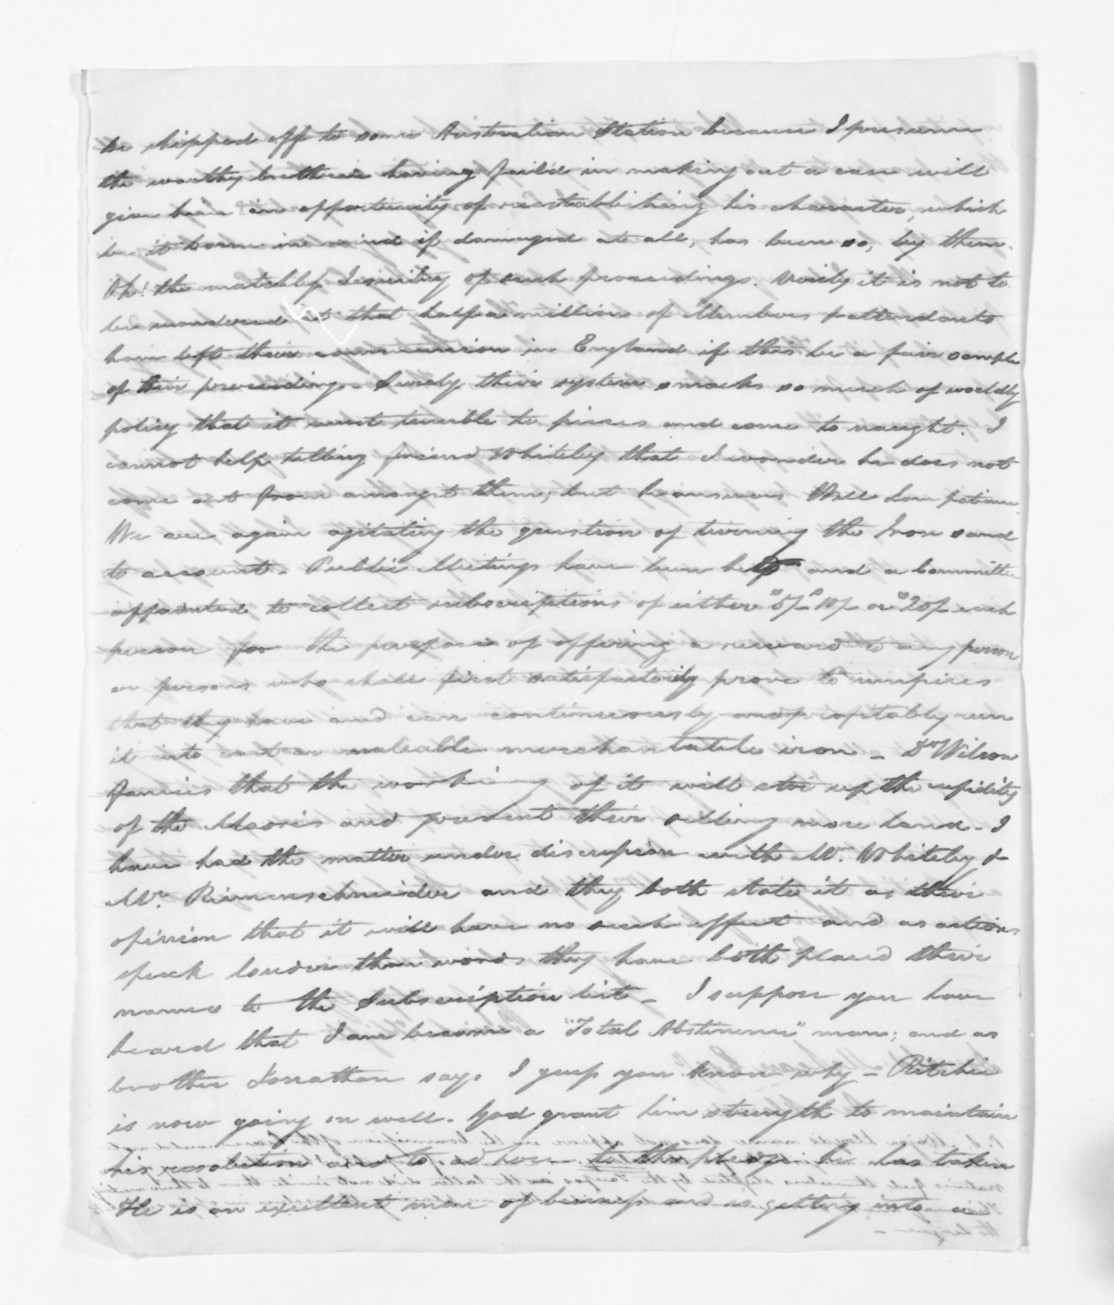 be shipped off to some Australian Station because I presume
the worthy brethren having fail'd in making out a case will
give him an opportunity of reestablishing his character, which
be it borne in mind if damaged at all, has been so, by them.
Oh! the matchless Jesuitry of such proceedings. Verily it is not to
be wondered at that half a million of Members & attendants
have left their connexion in England if this be a fair sample
of their proceedings. Surely their system smacks so much of worldly
policy that it must tumble to pieces and come to naught. I
cannot help telling friend Whiteley that I wonder he does not
come out from amongst them; but he answers
We are again agitating the question of turning the Iron sand
to account. Public Meetings have been held and a Committee
appointed to collect subscriptions of either 5/- 10/- or 20/- each
person for the purpose of offering a reward to any person
or persons who shall first satisfactorily prove to umpires
that they have and can continuously and profitably run
it into cast or maleable merchantable iron - Dr Wilson
fancies that the working of it will stir up the cupidity
of the Maoris and prevent their selling more land. I
have had the matter under discussion with Mr. Whiteley &
Mr. Riemenschneider and they both state it as their
opinion that it will have no such effect and as actions
speak louder than words they have both placed their
names to the Subscription list - I suppose you have
heard that I am become a "Total Abstinence" man; and as
brother Jonathan says I guess you know why - Ritchie
is now going on well. God grant him strength to maintain
his resolution and to adhere to the pledge he has taken
He is an excellent man of business and is getting into a